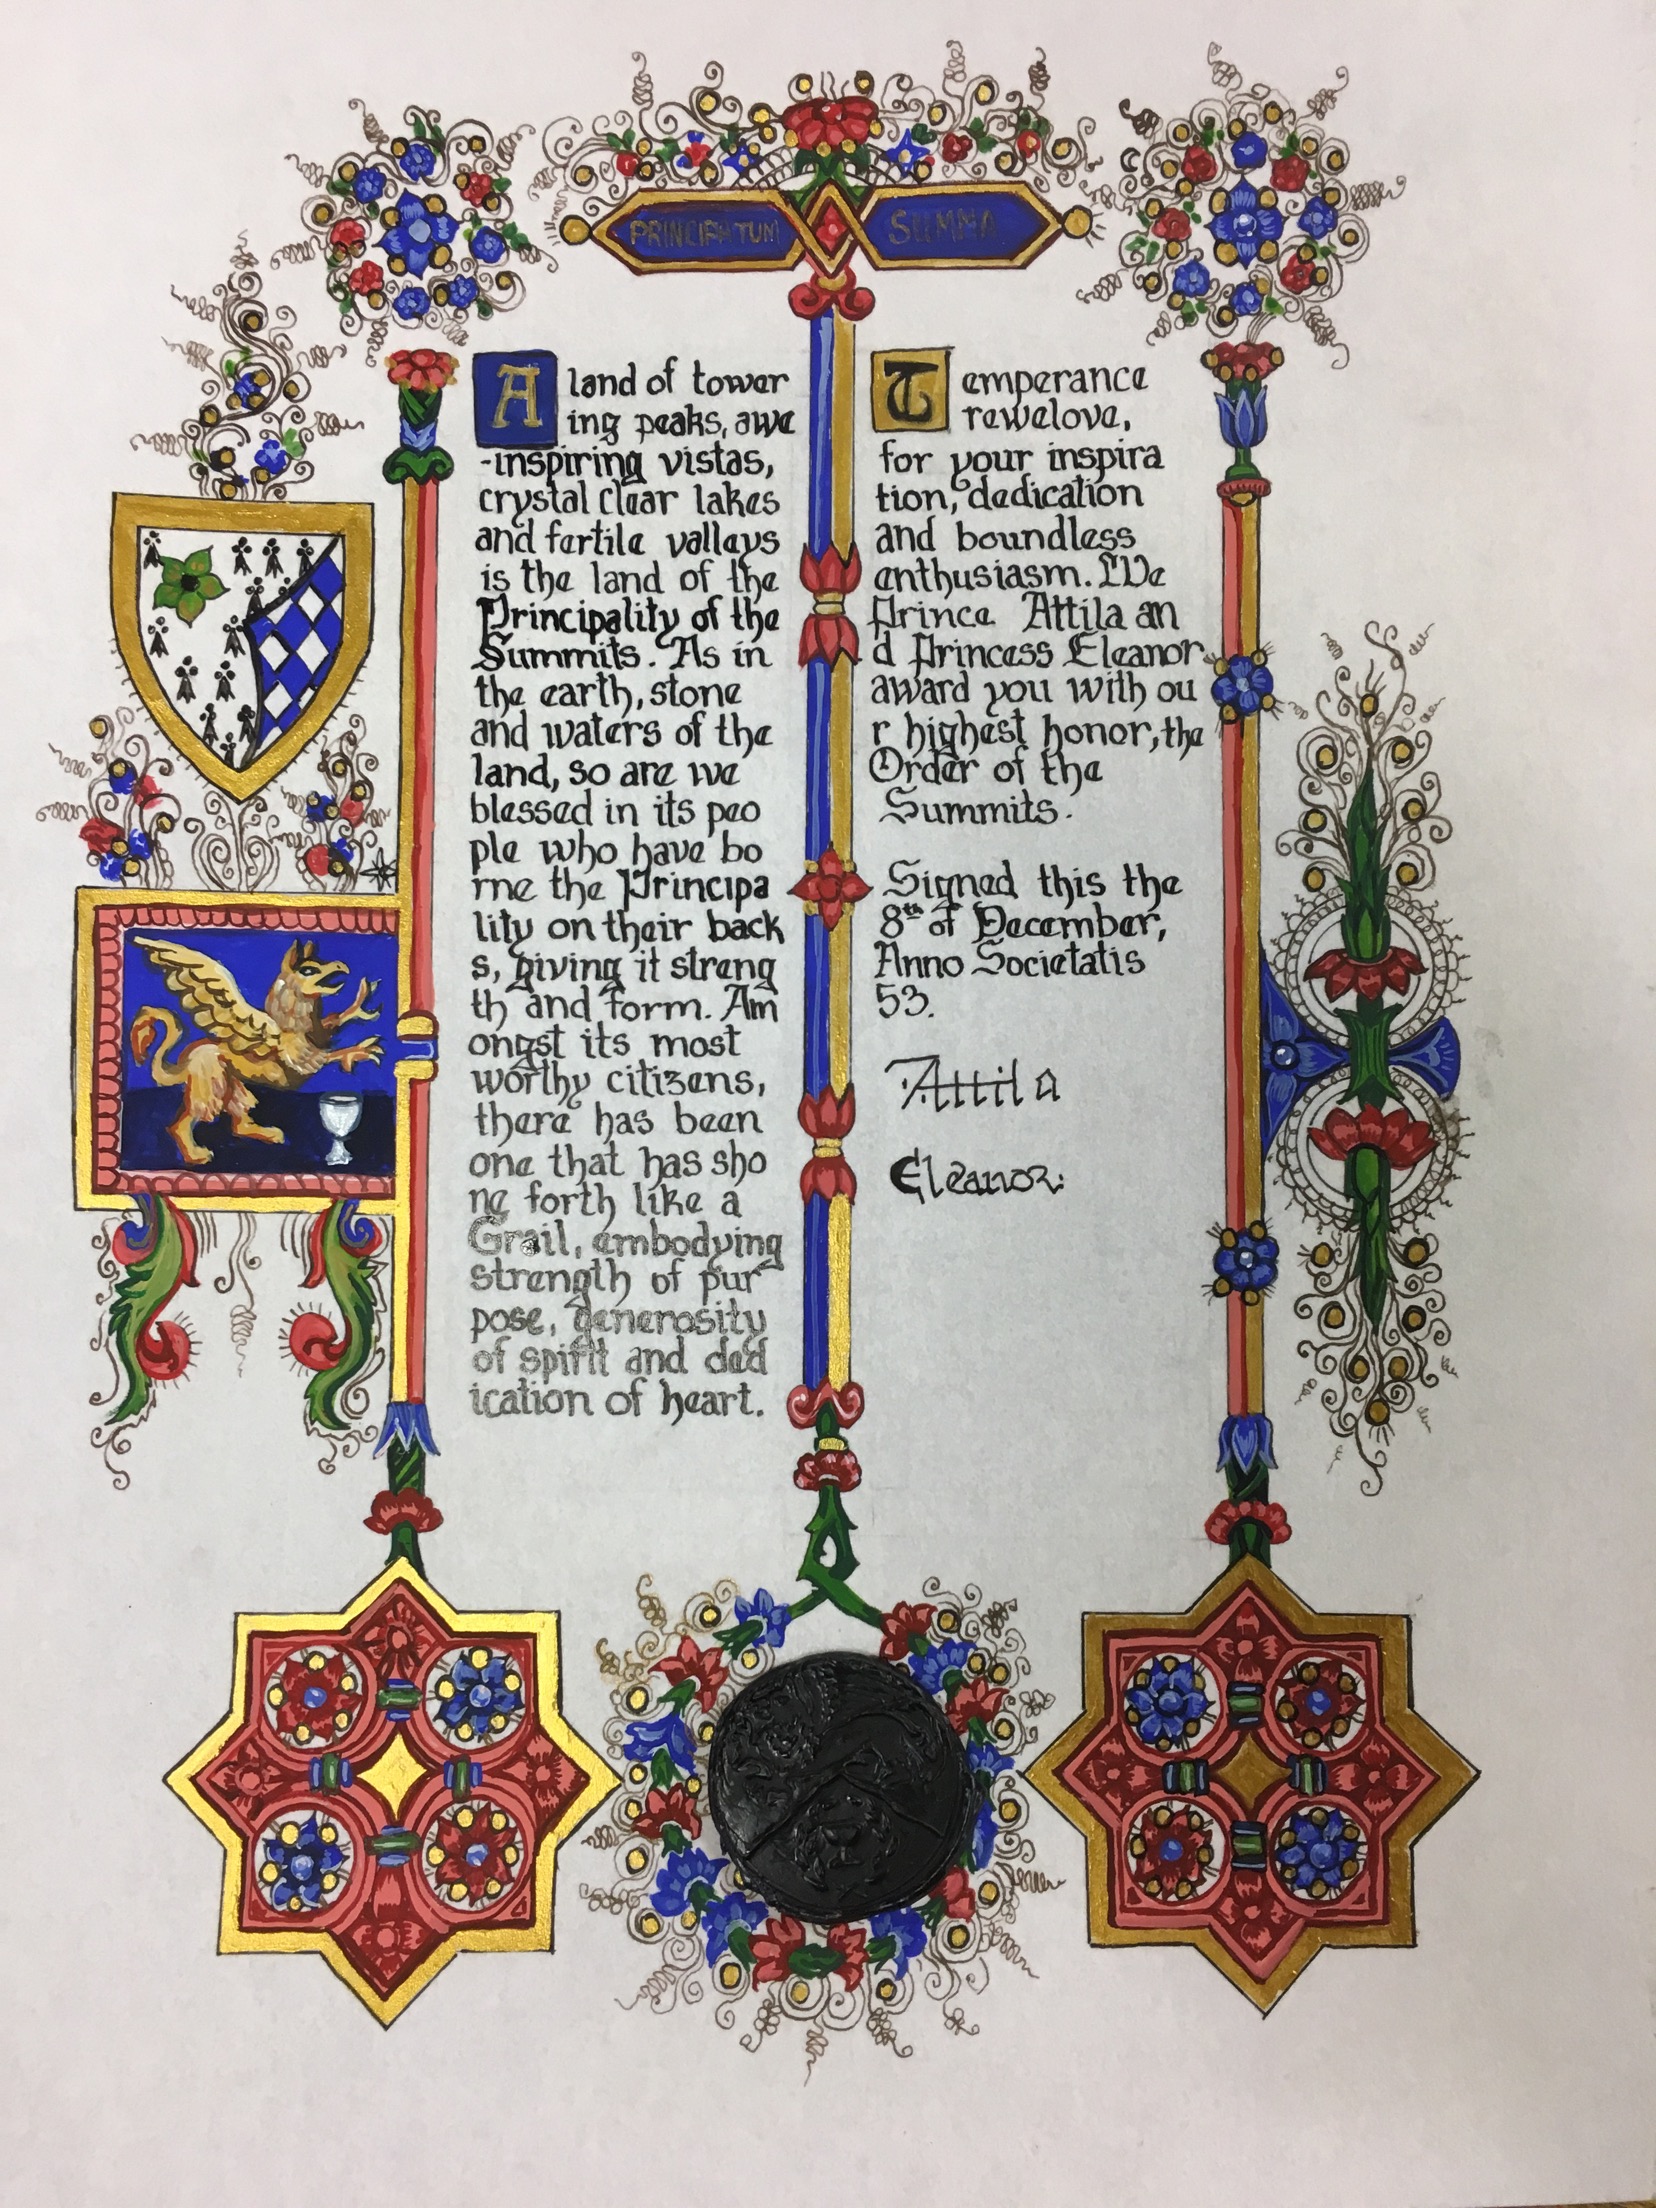 PRINCIPATUM SUMMA
A land of tower
ing peaks, awe
-inspiring vistas,
crystal clear lakes
and fertile valleys
is the land of the
Principality of the
Summits. As in
the earth, stone
and waters of the
land, so are we
blessed in its peo
ple who have bo
rne the Principa
lity on their back
s, giving it streng
th and form. Am
ongst its most
worthy citizens,
there has been
one that has sho
ne forth like a
Grail, embodying
strength of pur
pose, generosity
of spirit and ded
ication of heart.
Temperance
rewelove,
for your inspira
tion, dedication
and boundless
enthusiasm. We
Prince Attila an
d Princess Eleanor
award you with ou
r highest honor, the
Order of the
Summits.
Signed this the
8th of December,
Anno Societatis
53.
Attila
Eleanor: